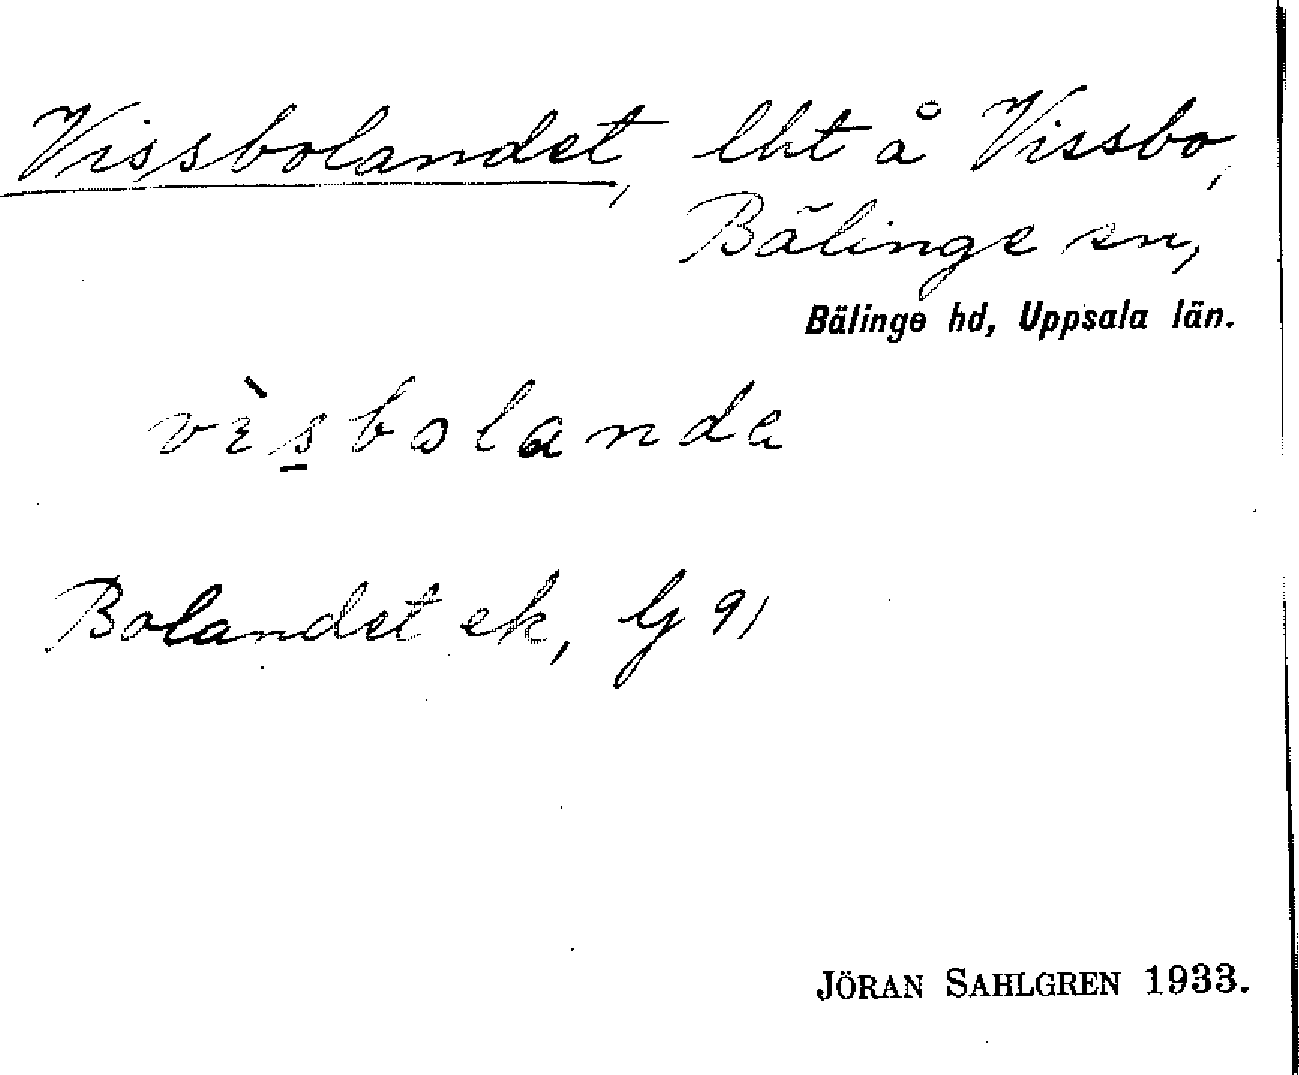 Vissbolandet, lht å Vissbo,
Bälinge sn,
Bälinge hd, Uppsala län.
vèsbolanda
Bolandet ek, lj 91
JÖRAN SAHLGREN 1933.